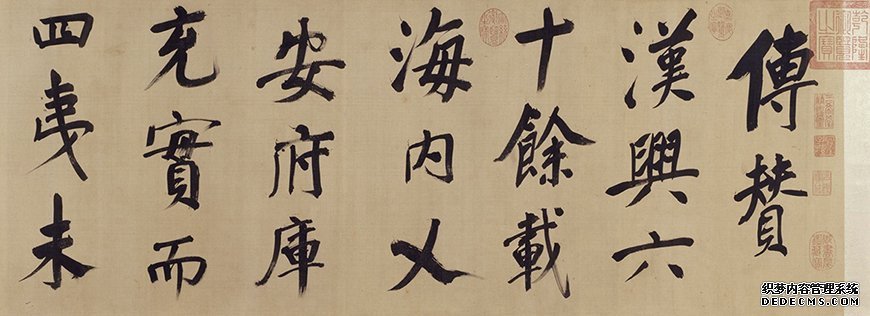 傳贊
漢興六
十餘載
海内乂
安府庫
充實而
四夷未
乾隆御覽之寶
织梦内容管理系统
DEDECMS.COM